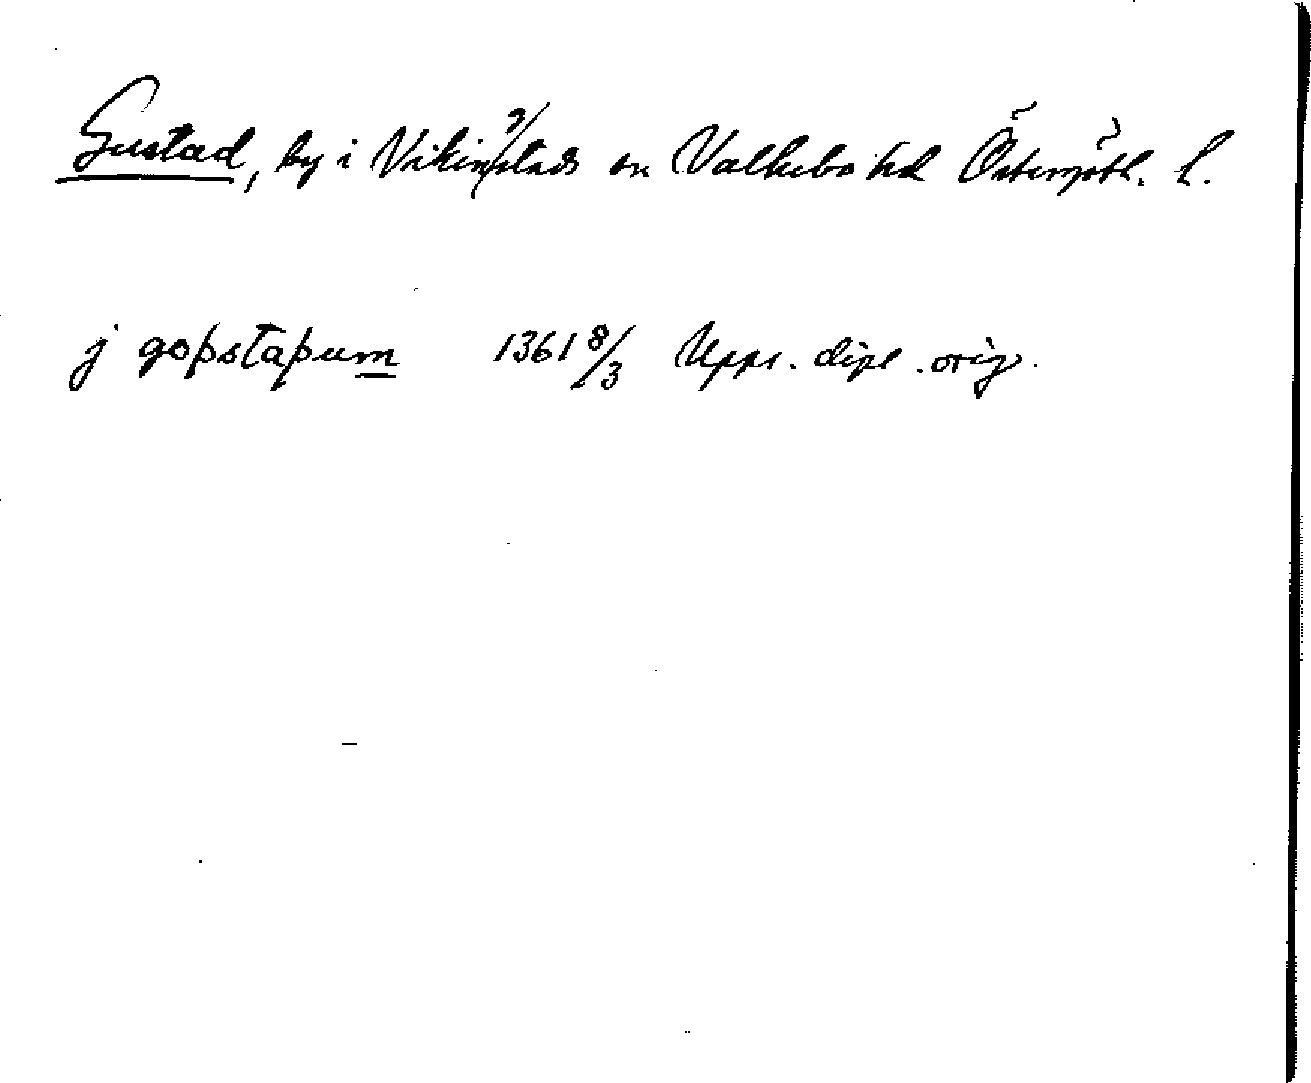 Gustad, by i Vikingstads sn Valkebo hd Östergötl. l.
j goþstaþum 1361 8/3 Upps. dipl. orig.